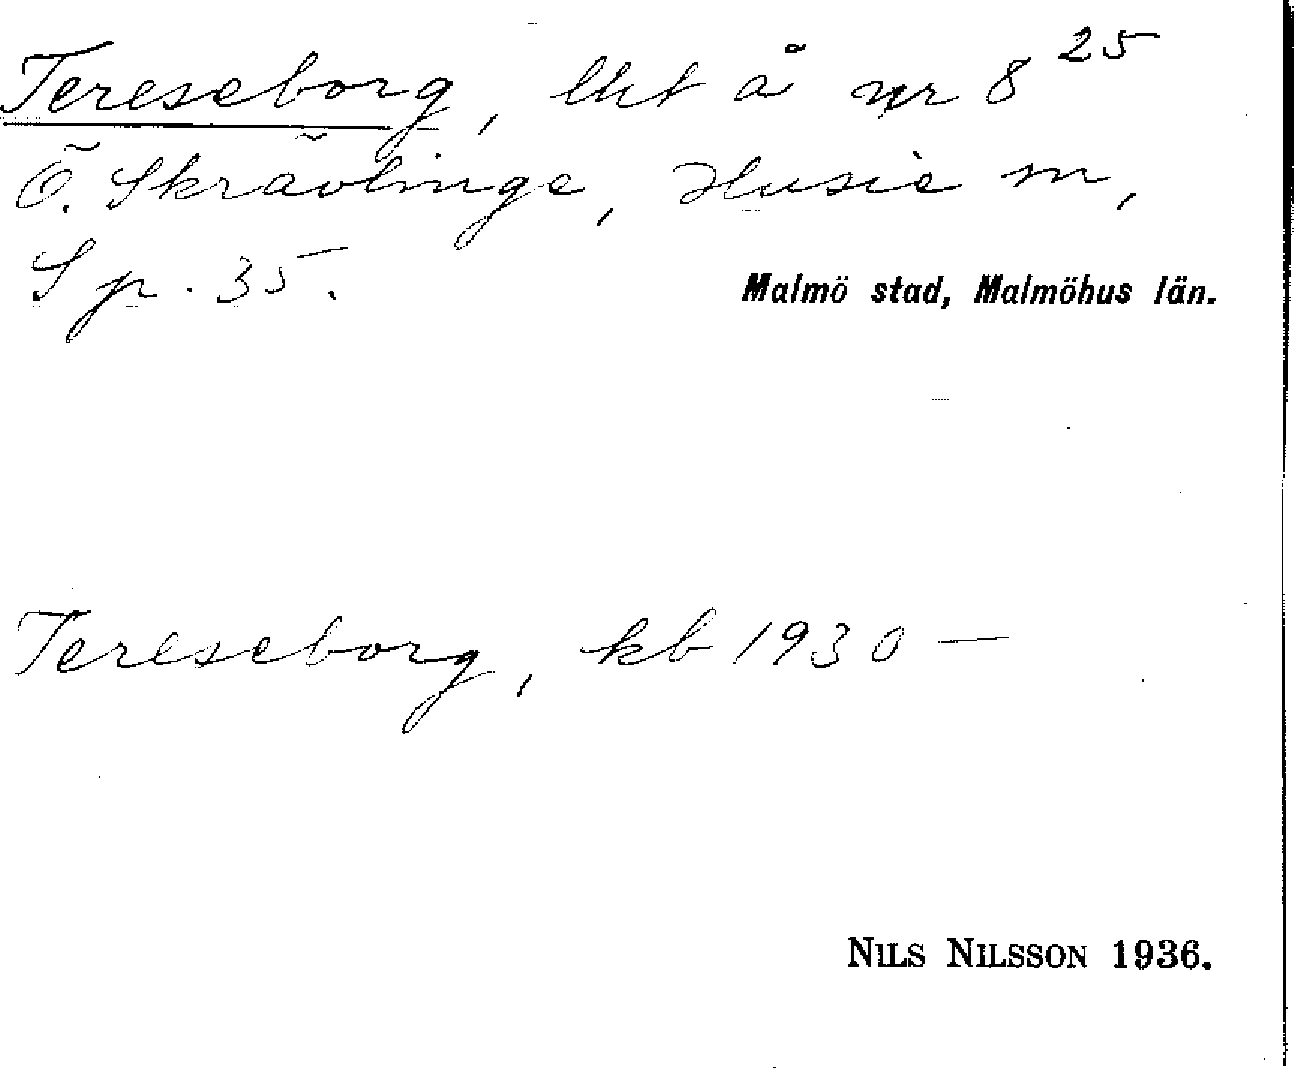 Tereseborg, lht å nr 8 25
Ö. Skrävlinge, Husie sn,
S p. 35.
Malmö stad, Malmöhus län.
Tereseborg, kb 1930 —
NILS NILSSON 1936.